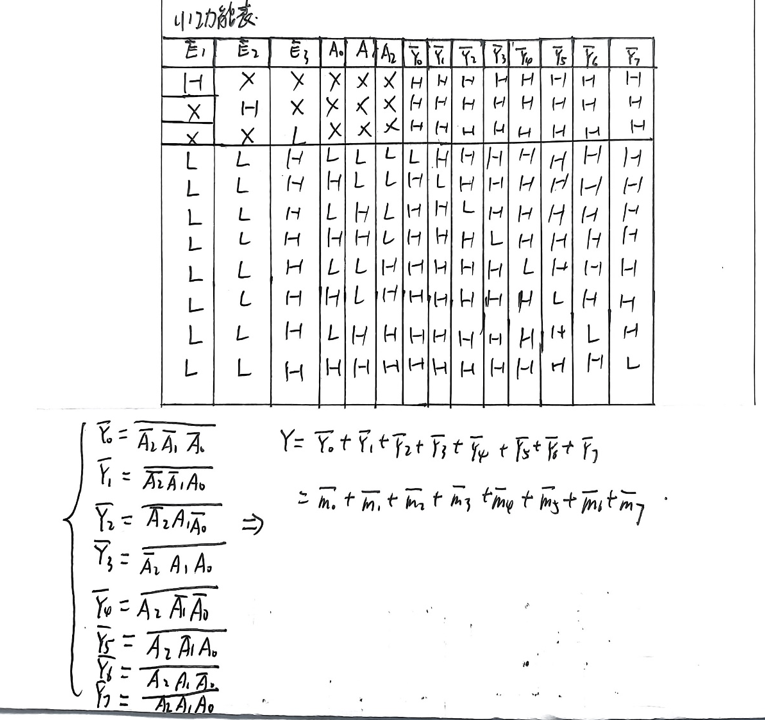 (1)功能表
Ē₁ Ē₂ Ē₃ A₀ A₁ A₂ Ȳ₀ Ȳ₁ Ȳ₂ Ȳ₃ Ȳ₄ Ȳ₅ Ȳ₆ Ȳ₇
H X X X X X H H H H H H H H
X H X X X X H H H H H H H H
X X L X X X H H H H H H H H
L L H L L L L H H H H H H H
L L H H L L H L H H H H H H
L L H L H L H H L H H H H H
L L H H H L H H H L H H H H
L L H L L H H H H H L H H H
L L H H L H H H H H H L H H
L L H L H H H H H H H H L H
L L H H H H H H H H H H H L
Ȳ₀ = \overline{Ā₂ Ā₁ Ā₀}
Ȳ₁ = \overline{Ā₂ Ā₁ A₀}
Ȳ₂ = \overline{Ā₂ A₁ Ā₀}
Ȳ₃ = \overline{Ā₂ A₁ A₀}
Ȳ₄ = \overline{A₂ Ā₁ Ā₀}
Ȳ₅ = \overline{A₂ Ā₁ A₀}
Ȳ₆ = \overline{A₂ A₁ Ā₀}
Ȳ₇ = \overline{A₂ A₁ A₀}
⇒ Y = Ȳ₀ + Ȳ₁ + Ȳ₂ + Ȳ₃ + Ȳ₄ + Ȳ₅ + Ȳ₆ + Ȳ₇
= m̄₀ + m̄₁ + m̄₂ + m̄₃ + m̄₄ + m̄₅ + m̄₆ + m̄₇